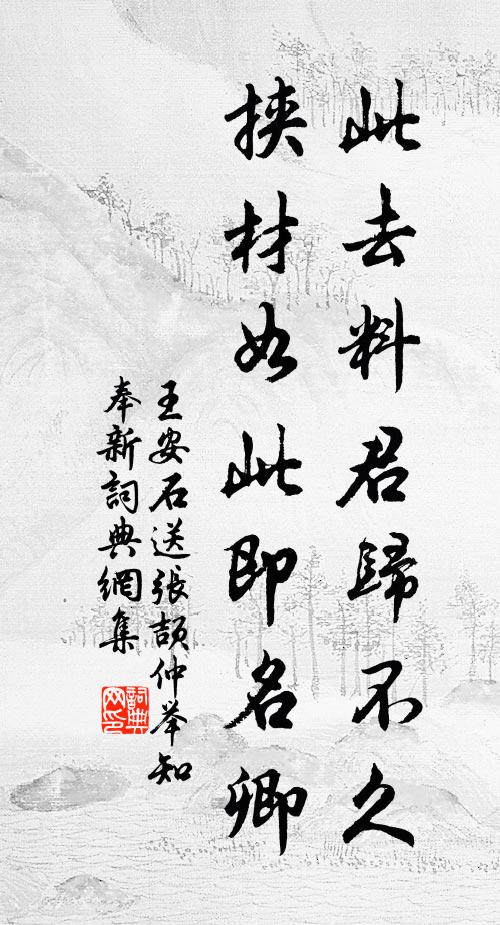 此去料君歸不久
挾材如此即名卿
王安石送張頡仲举知
奉新詞典網集
詞典网印